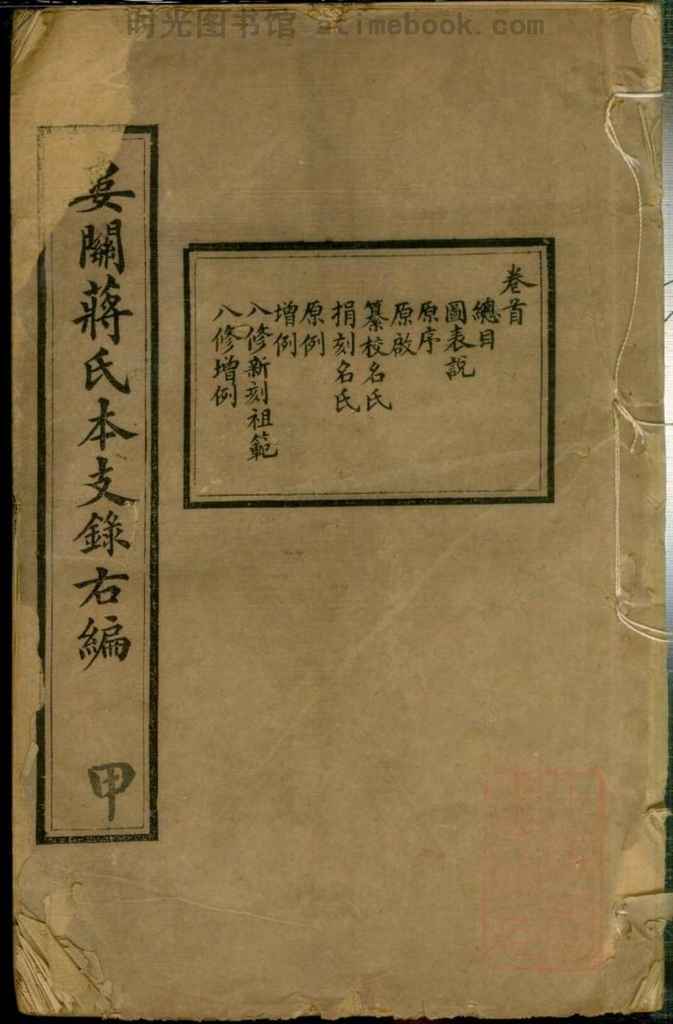 时光图书馆
卷首
總目
圖表說
原序
原啟
纂校名氏
捐刻名氏
原例
增例
八修新刻祖範
八修增例
婁關蔣氏本支錄右編 甲